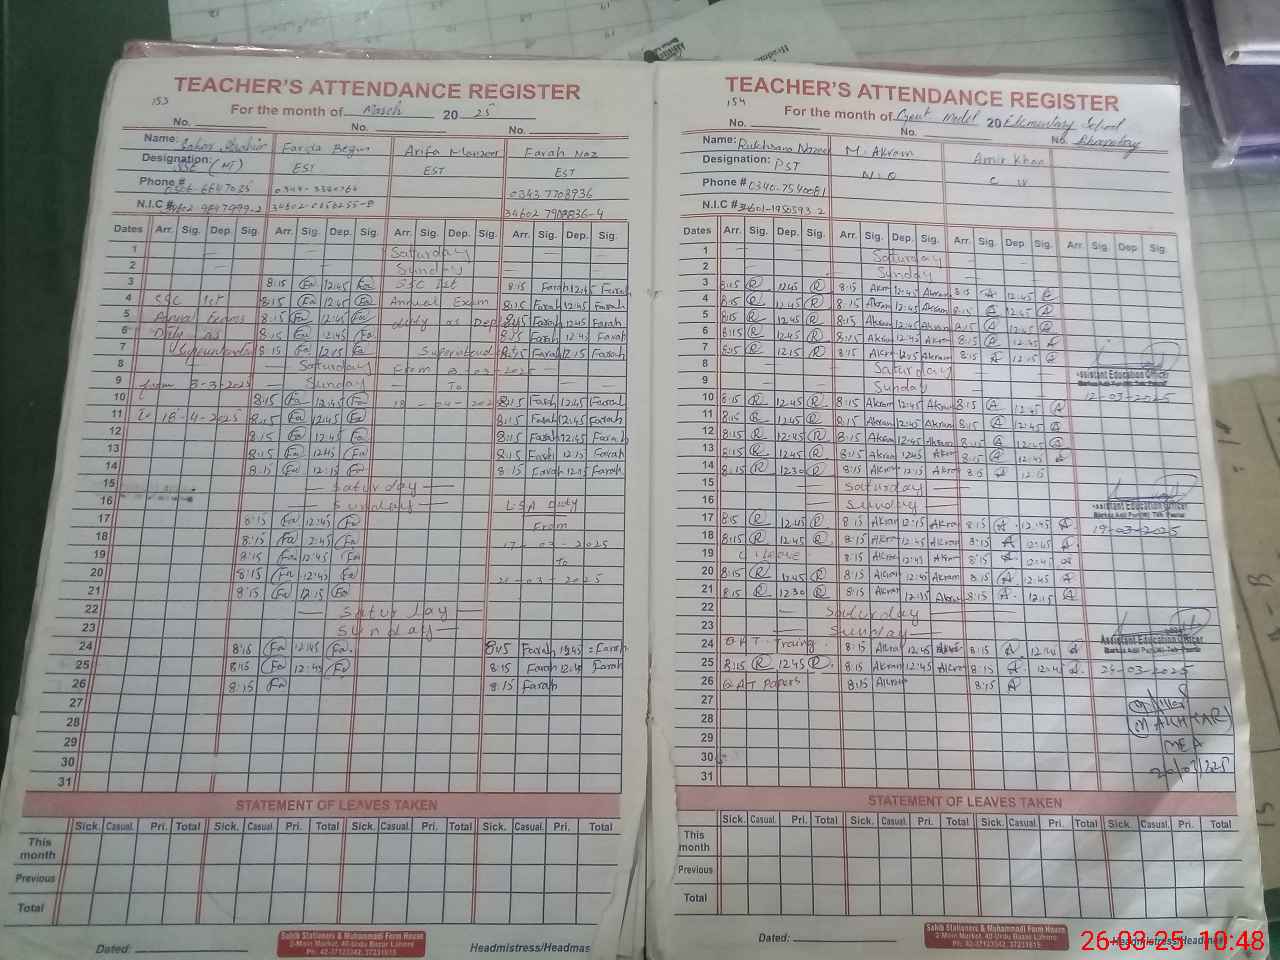 TEACHER'S ATTENDANCE REGISTER
153
For the month of March 20 25
No. No. No.
Name: Farida Begum Arifa Manzoor Farah Naz
Designation: SST (HT) EST EST EST
Phone # 0343 7708936
N.I.C # 34602 7908836-4
Dates Arr. Sig. Dep. Sig. Arr. Sig. Dep. Sig. Arr. Sig. Dep. Sig. Arr. Sig. Dep. Sig.
1 Saturday
2 Sunday
3 8:15 Fa 12:45 Fa SSC 1st 8:15 Farah 12:45 Farah
4 SSC 1st 8:15 Fa 12:45 Fa Annual Exam 8:15 Farah 12:45 Farah
5 Annual Exams 8:15 Fa 12:45 Fa duty as Dep 8:15 Farah 12:45 Farah
6 Duty as 8:15 Fa 12:45 Fa 8:15 Farah 12:45 Farah
7 8:15 Fa 12:15 Fa 8:15 Farah 12:15 Farah
8 Saturday From 3-03-2025
9 from 3-3-2025 Sunday To
10 8:15 Fa 12:45 Fa 18-04-202 8:15 Farah 12:45 Farah
11 To 18-4-2025 8:15 Fa 12:45 Fa 8:15 Farah 12:45 Farah
12 8:15 Fa 12:45 Fa 8:15 Farah 12:45 Farah
13 8:15 Fa 12:45 Fa 8:15 Farah 12:45 Farah
14 8:15 Fa 12:15 Fa 8:15 Farah 12:15 Farah
15 Saturday
16 Sunday LSA Duty
17 8:15 Fa 12:45 Fa From
18 8:15 Fa 2:45 Fa 17-03-2025
19 8:15 Fa 12:45 Fa To
20 8:15 Fa 12:45 Fa 21-03-2025
21 8:15 Fa 12:15 Fa
22 Saturday
23 Sunday
24 8:15 Fa 12:45 Fa 8:15 Farah 12:45 Farah
25 8:15 Fa 12:45 Fa 8:15 Farah 12:45 Farah
26 8:15 Fa 8:15 Farah
27
28
29
30
31
STATEMENT OF LEAVES TAKEN
Sick. Casual. Pri. Total Sick. Casual. Pri. Total Sick. Casual. Pri. Total Sick. Casual. Pri. Total
This month
Previous
Total
Dated:
Sahib Stationers & Muhammadi Form House
2-Main Market, 40-Urdu Bazar Lahore
Ph: 42-37123342, 37231815
Headmistress/Headmas
TEACHER'S ATTENDANCE REGISTER
154
For the month of Govt Model 20 Elementary School
No. No. No.
Name: Rukhsana M. Akram Amir Khan
Designation: PST N.Q
Phone # 0340-7540081
N.I.C #
Dates Arr. Sig. Dep. Sig. Arr. Sig. Dep. Sig. Arr. Sig. Dep Sig. Arr. Sig. Dep Sig.
1 Saturday
2 Sunday
3 8:15 R 12:45 R 8:15 Akram 12:45 Akram 8:15 A 12:45
4 8:15 R 12:45 R 8:15 Akram 12:45 Akram 8:15 A 12:45 A
5 8:15 R 12:45 R 8:15 Akram 12:45 Akram 8:15 A 12:45 A
6 8:15 R 12:45 R 8:15 Akram 12:45 Akram 8:15 A 12:45 A
7 8:15 R 12:15 R 8:15 Akram 12:15 Akram 8:15 A 12:15 A
8 Saturday
9 Sunday
Assistant Education Officer
12-03-2025
10 8:15 R 12:45 R 8:15 Akram 12:45 Akram 8:15 A 12:45 A
11 8:15 R 12:45 R 8:15 Akram 12:45 Akram 8:15 A 12:45 A
12 8:15 R 12:45 R 8:15 Akram 12:45 Akram 8:15 A 12:45 A
13 8:15 R 12:45 R 8:15 Akram 12:45 Akram 8:15 A 12:45 A
14 8:15 R 12:30 R 8:15 Akram 12:15 Akram 8:15 A
15 Saturday
16 Sunday
Assistant Education Officer
19-03-2025
17 8:15 R 12:45 R 8:15 Akram 12:15 Akram 8:15 A 12:45 A
18 8:15 R 12:45 R 8:15 Akram 12:45 Akram 8:15 A 12:45 A
19 C. leave 8:15 Akram 12:45 Akram 8:15 A 12:45 A
20 8:15 R 12:45 R 8:15 Akram 12:45 Akram 8:15 A 12:45 A
21 8:15 R 12:30 R 8:15 Akram 12:15 Akram 8:15 A 12:15 A
22 Saturday
23 Sunday
Assistant Education Officer
24 8:15 Akram 12:45 Akram 8:15 A 12:45 A
25 8:15 R 12:45 R 8:15 Akram 12:45 Akram 8:15 A 12:45 A 25-03-2025
26 QAT Papers 8:15 Akram 8:15 A
27
28
29 MEA
30
31
STATEMENT OF LEAVES TAKEN
Sick. Casual. Pri. Total Sick. Casual. Pri. Total Sick. Casual. Pri. Total Sick. Casual. Pri. Total
This month
Previous
Total
Dated:
Sahib Stationers & Muhammadi Form House
2-Main Market, 40-Urdu Bazar Lahore
Ph: 42-37123342, 37231815
Headmistress/Headmas
26-03-25 10:48